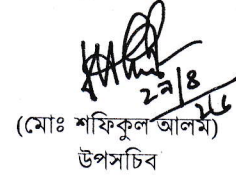 ২৭/৪
(মোঃ শফিকুল আলম)
উপসচিব